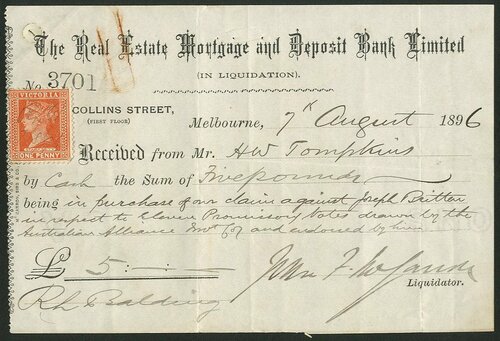 The Real Estate Mortgage and Deposit Bank Limited
(IN LIQUIDATION).
No. 3701
VICTORIA
ONE PENNY
COLLINS STREET,
(FIRST FLOOR)
Melbourne, 7th August 1896
Received from Mr. HW Tompkins
by Cash the Sum of Five pounds
being in purchase of our claim against Joseph Britton
in respect to Eleven Promissory Notes drawn by the
Australian Alliance and endorsed by him
£ 5
Liquidator.